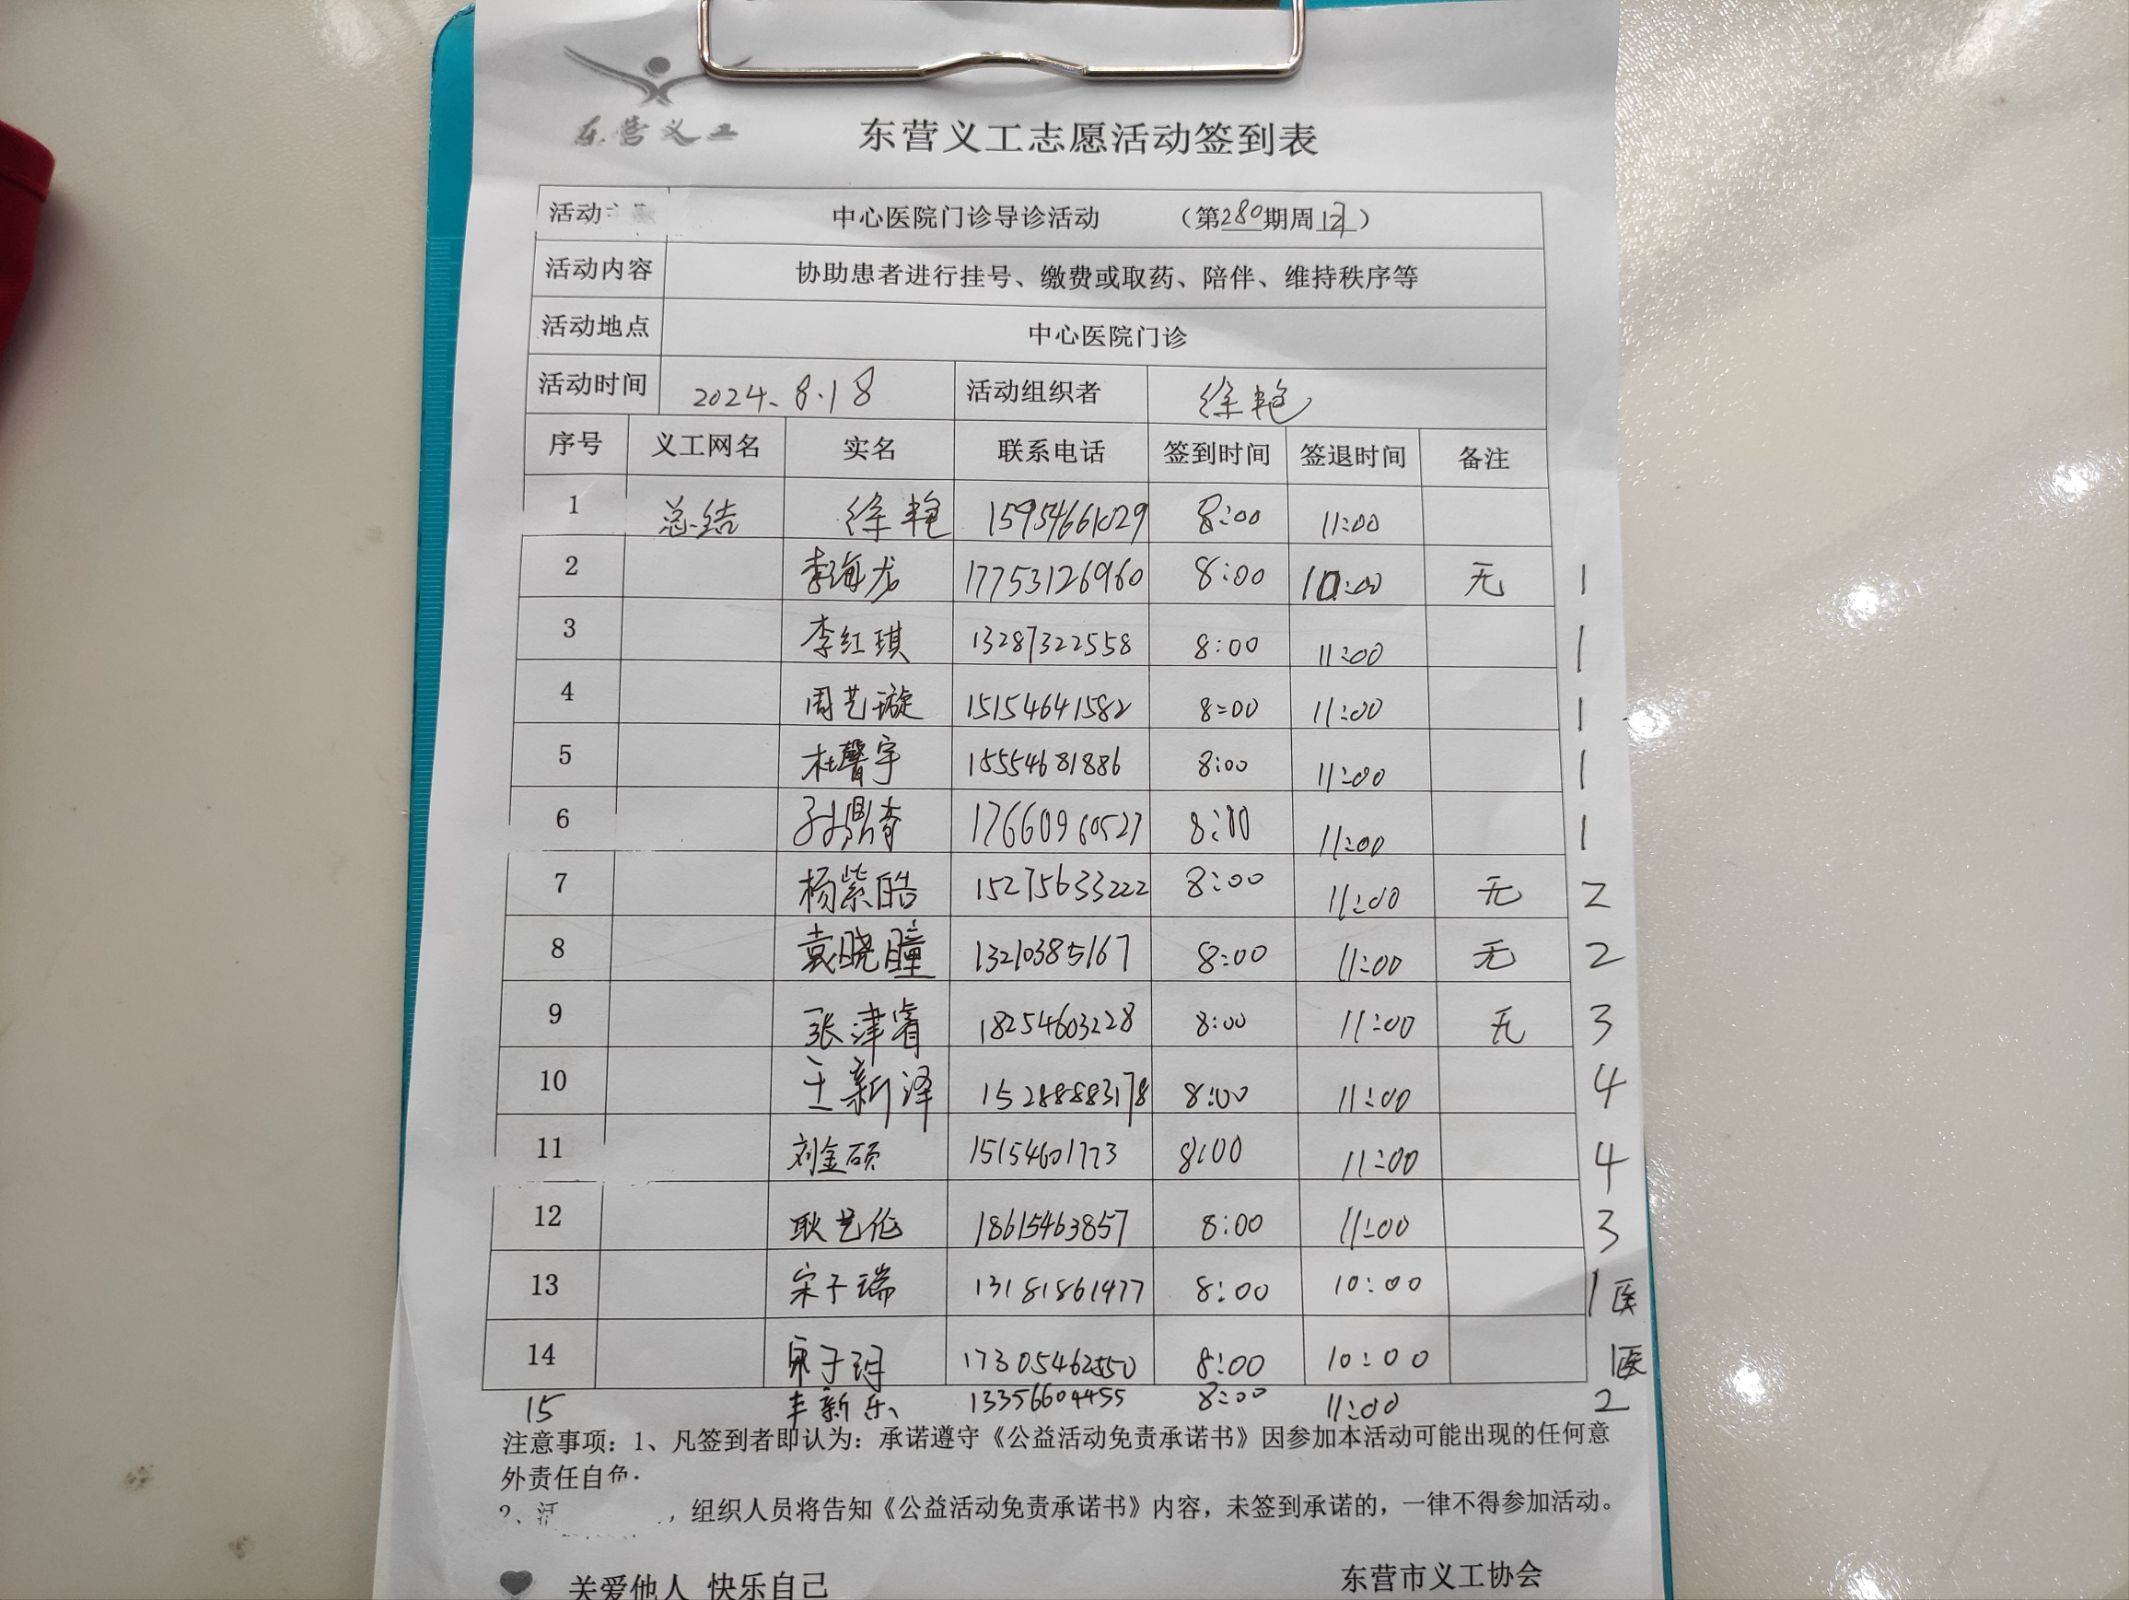 东营义工
东营义工志愿活动签到表
活动 中心医院门诊导诊活动 （第280期周 ）
活动内容 协助患者进行挂号、缴费或取药、陪伴、维持秩序等
活动地点 中心医院门诊
活动时间 2024.8.18 活动组织者 徐艳
序号 义工网名 实名 联系电话 签到时间 签退时间 备注
1 总结 徐艳 15954661029 8:00 11:00
2 李海龙 17753126960 8:00 10:00 无 1
3 李红琪 13287322558 8:00 11:00 1
4 周艺璇 15154641582 8:00 11:00 1
5 杜馨宇 15554681886 8:00 11:00 1
6 17660960527 8:00 11:00 1
7 杨紫皓 15275633222 8:00 11:00 无 2
8 袁晓瞳 13210385167 8:00 11:00 无 2
9 张津睿 18254603228 8:00 11:00 无 3
10 王新泽 15288883178 8:00 11:00 4
11 刘金硕 15154601773 8:00 11:00 4
12 耿艺伦 18615463857 8:00 11:00 3
13 宋子瑞 13181861477 8:00 10:00 1医
14 17305462550 8:00 10:00 1医
15 丰新乐 13356604455 8:00 11:00 2
注意事项：1、凡签到者即认为：承诺遵守《公益活动免责承诺书》因参加本活动可能出现的任何意
外责任自负.
2、活 ，组织人员将告知《公益活动免责承诺书》内容，未签到承诺的，一律不得参加活动。
关爱他人 快乐自己 东营市义工协会